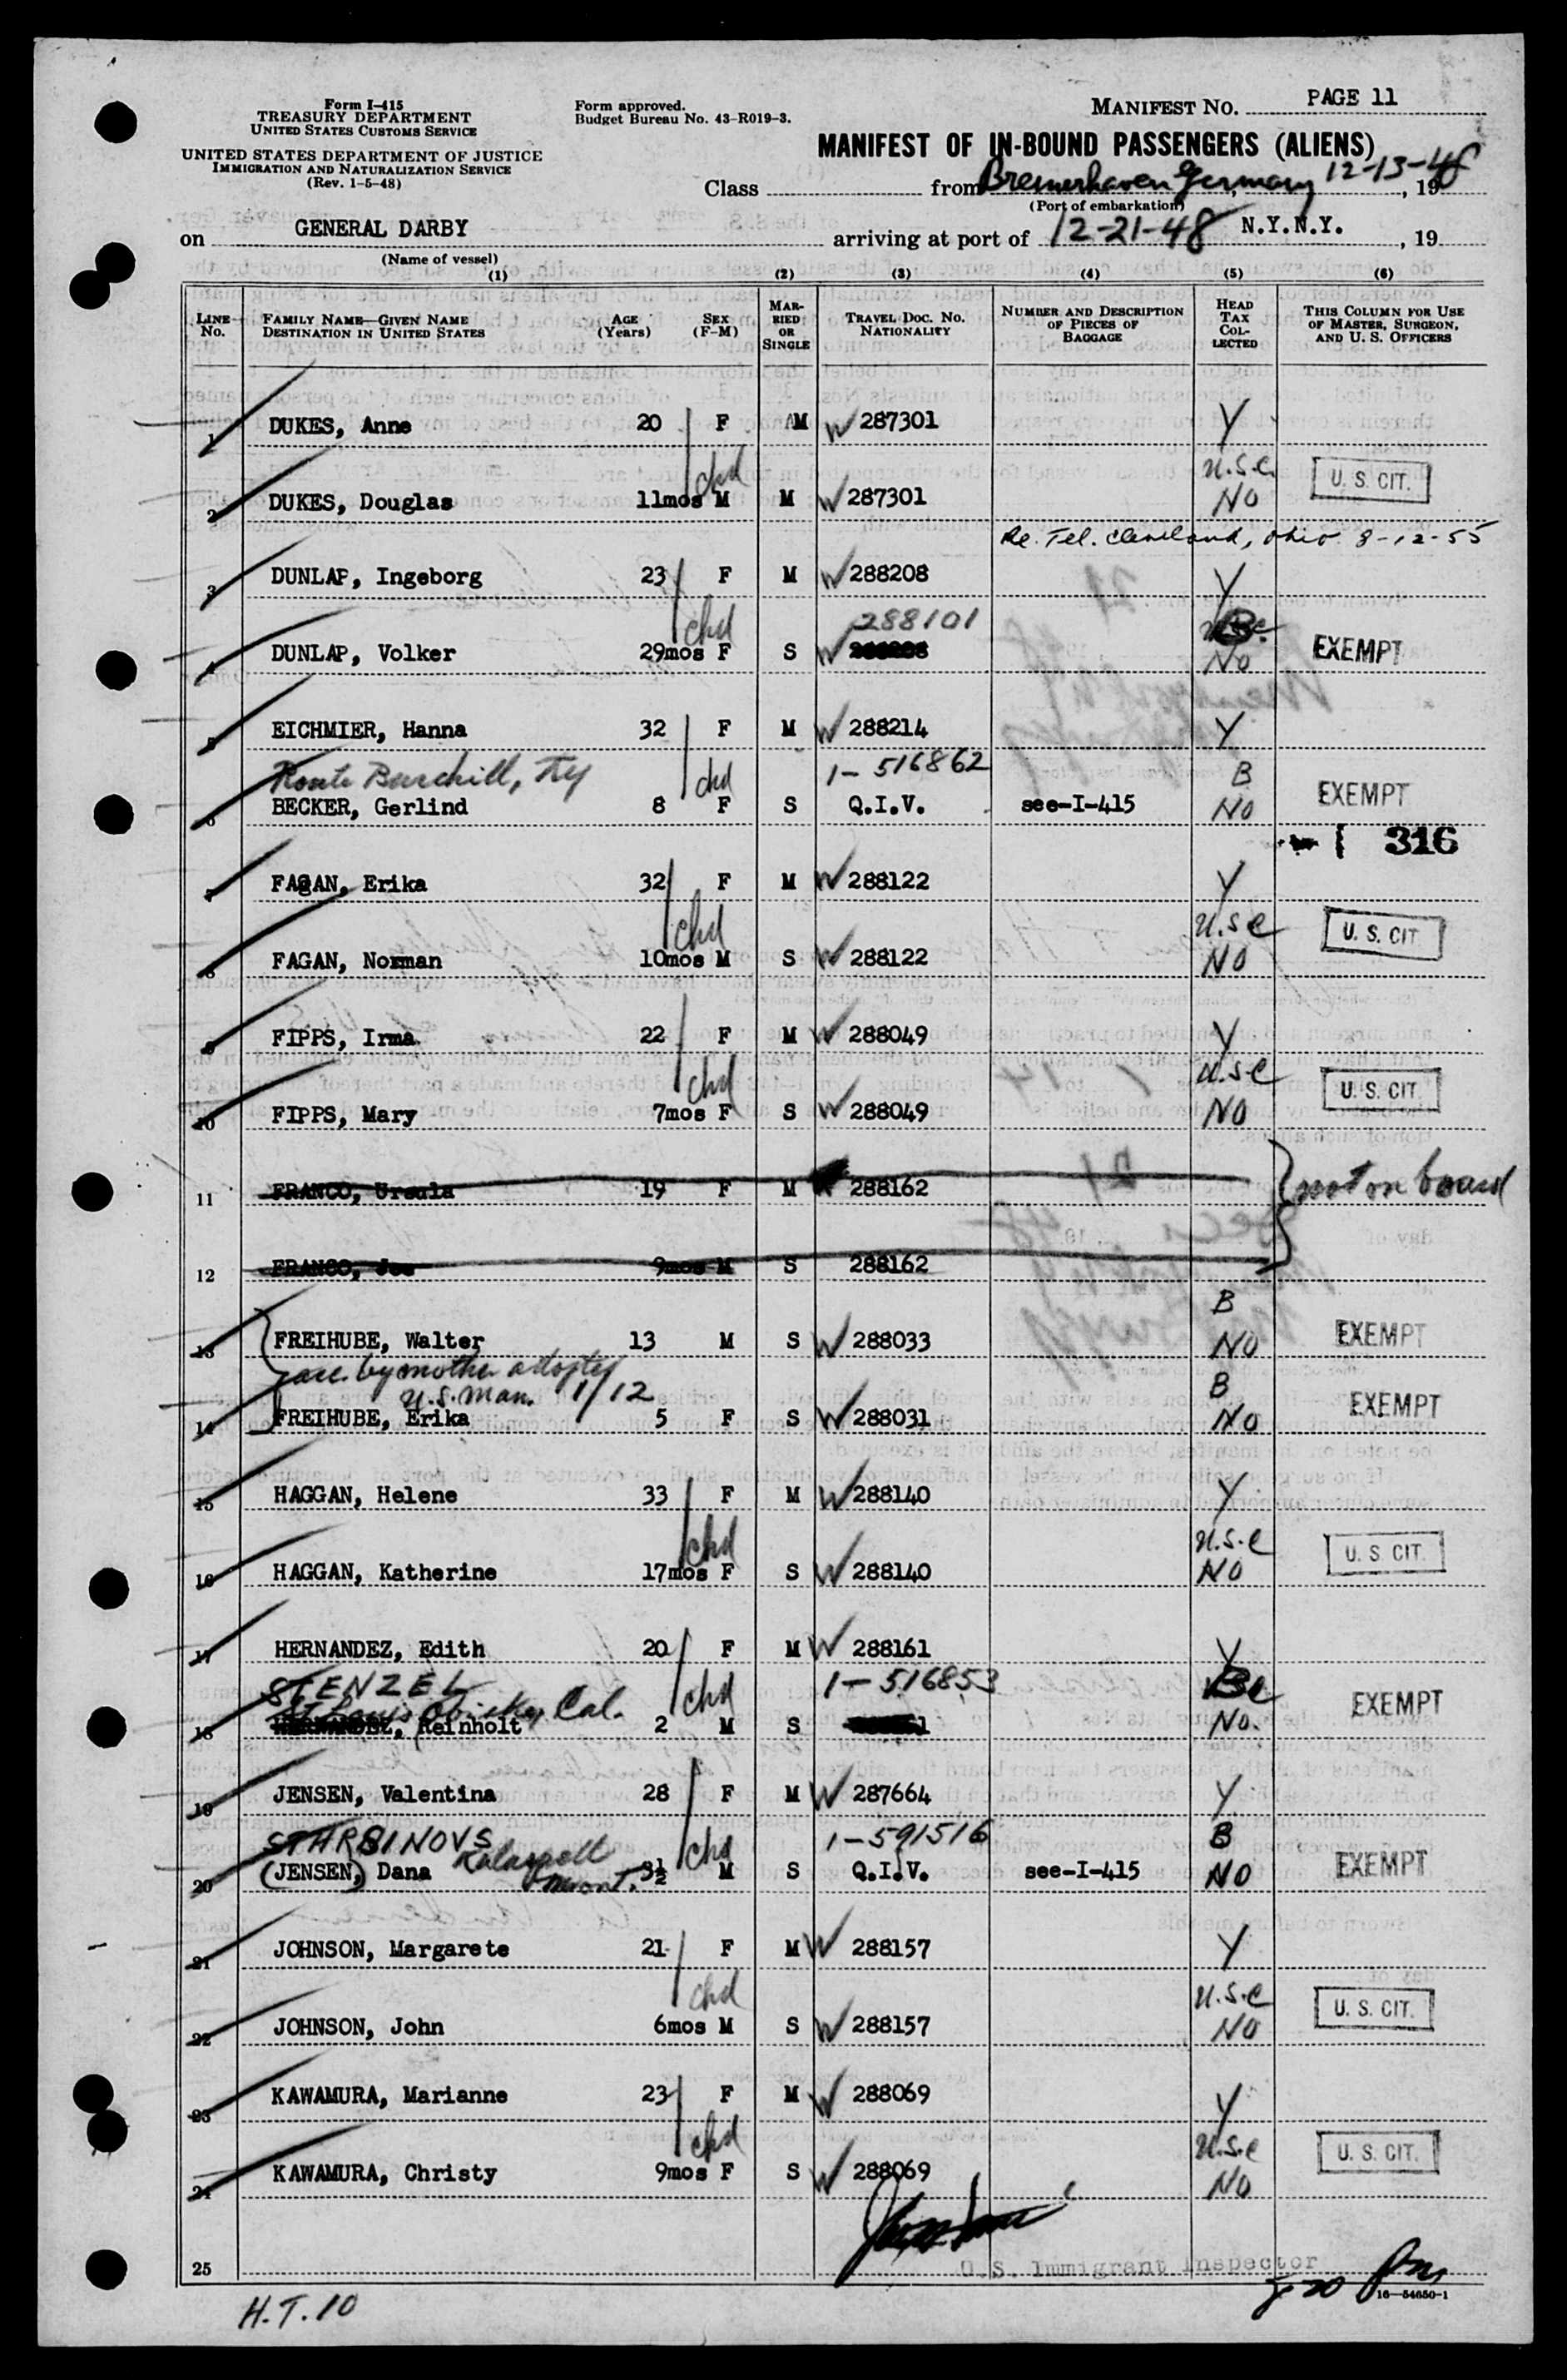 Form I-415
TREASURY DEPARTMENT
UNITED STATES CUSTOMS SERVICE
UNITED STATES DEPARTMENT OF JUSTICE
IMMIGRATION AND NATURALIZATION SERVICE
(Rev. 1-5-48)
Form approved.
Budget Bureau No. 43-R019-3.
MANIFEST NO. PAGE 11
MANIFEST OF IN-BOUND PASSENGERS (ALIENS)
Class from Bremerhaven Germany, 12-13-48, 19
(Port of embarkation)
on GENERAL DARBY arriving at port of 12-21-48 N.Y.N.Y., 19
(Name of vessel)
(1) (2) (3) (4) (5) (6)
LINE No. FAMILY NAME—GIVEN NAME DESTINATION IN UNITED STATES AGE (Years) SEX (F-M) MARRIED OR SINGLE TRAVEL DOC. NO. NATIONALITY NUMBER AND DESCRIPTION OF PIECES OF BAGGAGE HEAD TAX COLLECTED THIS COLUMN FOR USE OF MASTER, SURGEON, AND U. S. OFFICERS
1 DUKES, Anne 20 F M 287301 Y
chd U.S.C.
2 DUKES, Douglas 11mos M M 287301 NO U. S. CIT.
Re. Tel. Cleveland, Ohio 8-12-55
3 DUNLAP, Ingeborg 23 F M 288208 Y
chd 288101
4 DUNLAP, Volker 29mos F S No EXEMPT
5 EICHMIER, Hanna 32 F M 288214 Y
chd 1-516862 B
6 BECKER, Gerlind 8 F S Q.I.V. see-I-415 NO EXEMPT
316
7 FAGAN, Erika 32 F M 288122 Y
chd U.S.C
8 FAGAN, Norman 10mos M S 288122 NO U. S. CIT
9 FIPPS, Irma 22 F M 288049 Y
chd U.S.C
10 FIPPS, Mary 7mos F S 288049 NO U. S. CIT.
11 FRANCO, Ursula 19 F M 288162 not on board
12 FRANCO, Joe 9mos M S 288162
B
13 FREIHUBE, Walter 13 M S 288033 NO EXEMPT
acc. by mother adopted
U.S. man. 1/12 B
14 FREIHUBE, Erika 5 F S 288031 NO EXEMPT
15 HAGGAN, Helene 33 F M 288140 Y
chd U.S.C
16 HAGGAN, Katherine 17mos F S 288140 NO U. S. CIT.
17 HERNANDEZ, Edith 20 F M 288161 Y
STENZEL chd 1-516853
Cal.
18 HERNANDEZ, Reinholt 2 M S No. EXEMPT
19 JENSEN, Valentina 28 F M 287664 Y
STARSINOVS chd 1-591516 B
20 (JENSEN,) Dana Kalaspell Mont. 3½ M S Q.I.V. see-I-415 NO EXEMPT
21 JOHNSON, Margarete 21 F M 288157 Y
chd U.S.C
22 JOHNSON, John 6mos M S 288157 NO U. S. CIT.
23 KAWAMURA, Marianne 23 F M 288069 Y
chd U.S.C
24 KAWAMURA, Christy 9mos F S 288069 NO U. S. CIT.
25
U.S. Immigrant Inspector
H.T.10
16—54650-1